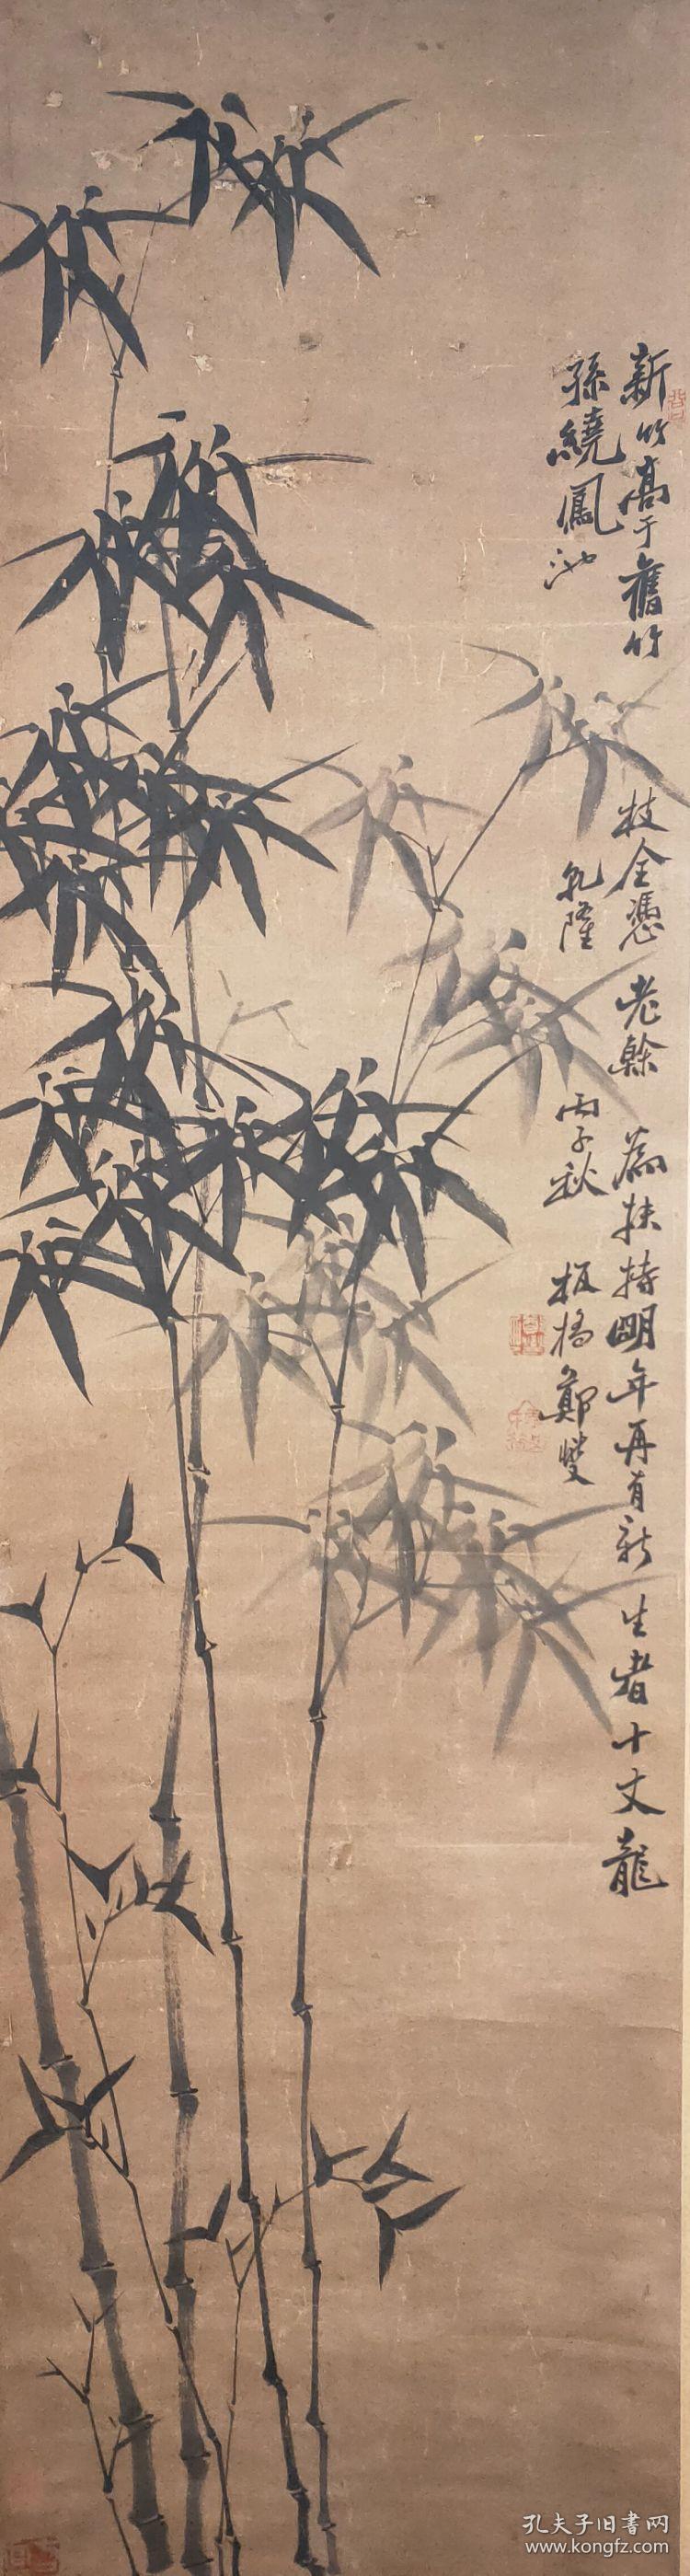 新竹高于舊竹枝全憑老榦為扶持明年再有新生者十丈龍
孫繞鳳池
乾隆丙子秋板橋鄭燮
孔夫子旧书网
www.kongfz.com